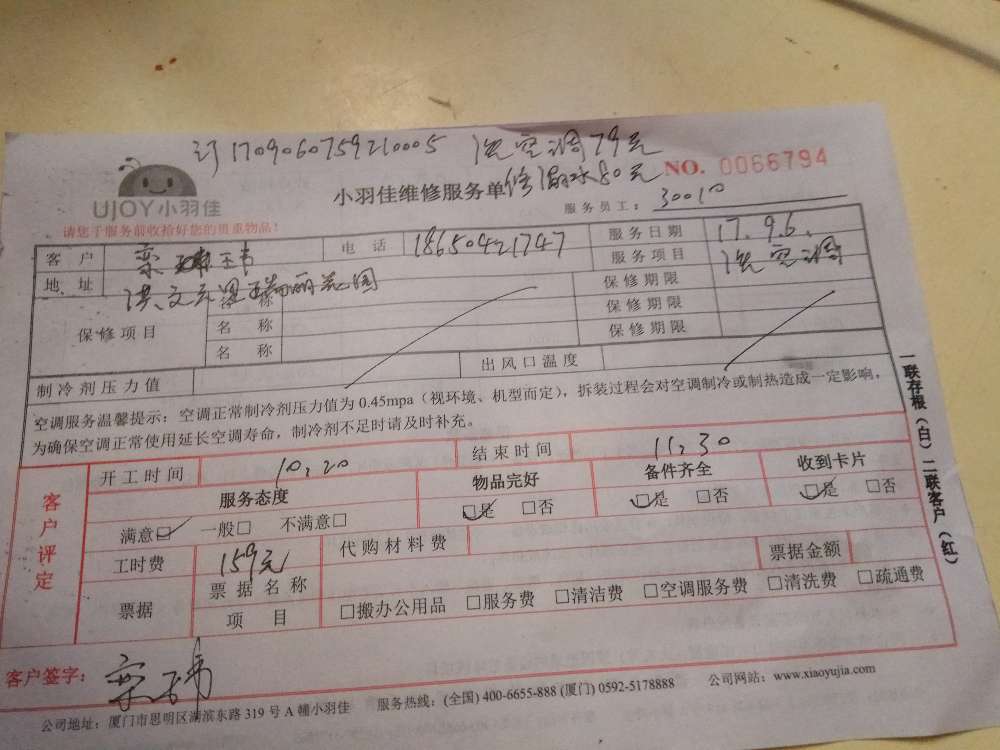 订170906075921 0005 洗空调79元
修漏水80元
NO. 0066794
UJOY小羽佳
小羽佳维修服务单
服务员工: 30010
请您于服务前收拾好您的贵重物品!
客户 栾玮 电话 18650421747 服务日期 17.9.6.
地址 洪文 花园 服务项目 洗空调
保修项目 名称 保修期限
名称 保修期限
名称 保修期限
制冷剂压力值 出风口温度
空调服务温馨提示: 空调正常制冷剂压力值为 0.45mpa (视环境、机型而定), 拆装过程会对空调制冷或制热造成一定影响,
为确保空调正常使用延长空调寿命, 制冷剂不足时请及时补充。
一联存根(白)二联客户(红)
客户评定
开工时间 10.20 结束时间 11.30
服务态度 物品完好 备件齐全 收到卡片
满意□ 一般□ 不满意□ □是 □否 □是 □否 □是 □否
工时费 159元 代购材料费
票据 票据名称 票据金额
项目 □搬办公用品 □服务费 □清洁费 □空调服务费 □清洗费 □疏通费
客户签字: 栾玮
公司地址: 厦门市思明区湖滨东路 319 号 A 幢小羽佳 服务热线: (全国) 400-6655-888 (厦门) 0592-5178888 公司网站: www.xiaoyujia.com